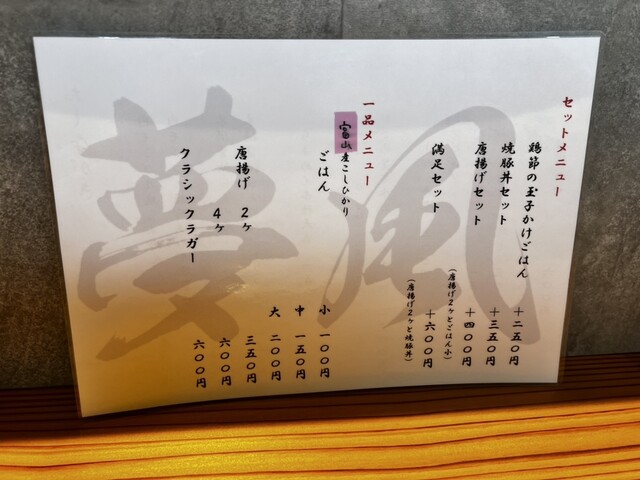 セットメニュー
鶏節の玉子かけごはん
+二五〇円
焼豚丼セット
+三五〇円
唐揚げセット
+四〇〇円
(唐揚げ2ヶとごはん小)
満足セット
+六〇〇円
(唐揚げ2ヶと焼豚丼)
一品メニュー
富山産こしひかり
ごはん
小 一〇〇円
中 一五〇円
大 二〇〇円
唐揚げ 2ヶ
三五〇円
4ヶ
六〇〇円
クラシックラガー
六〇〇円
風夢